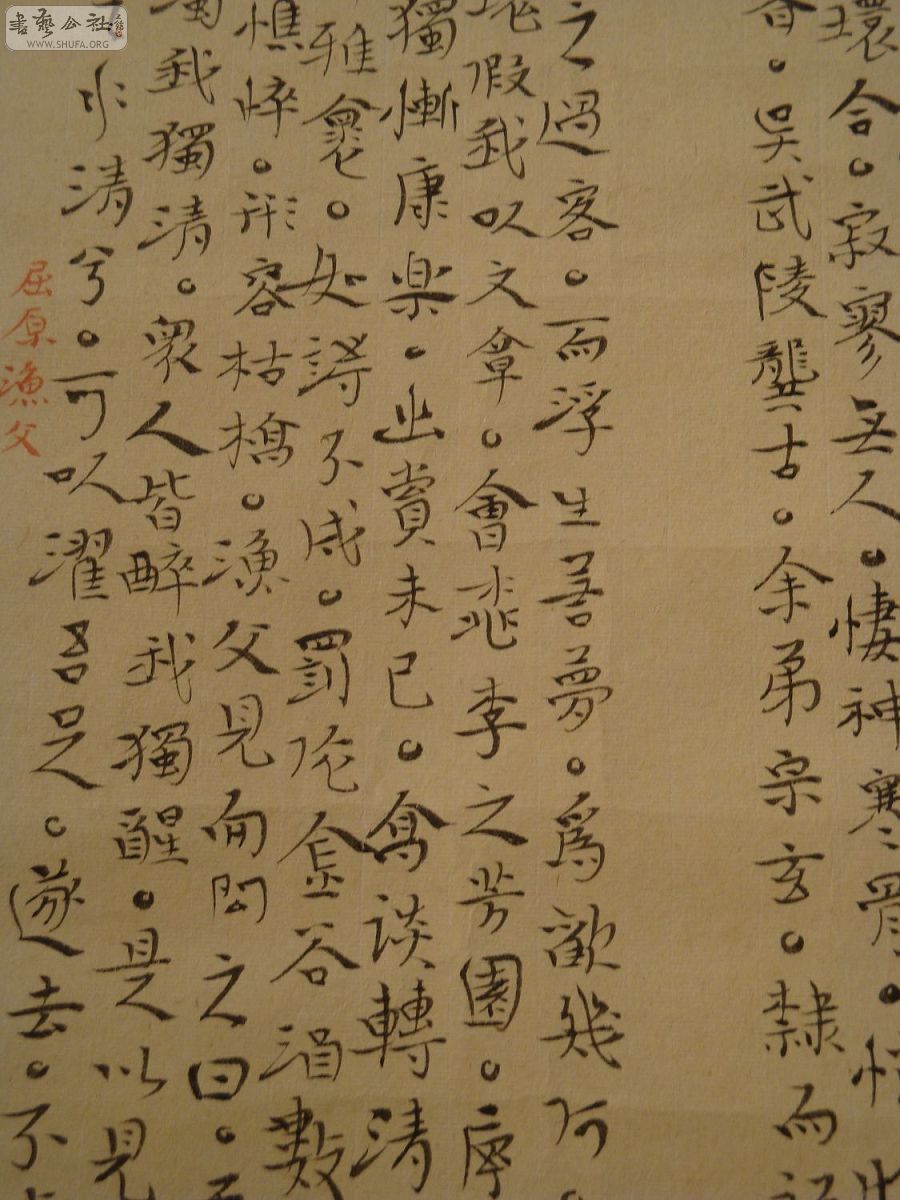 環合。寂寥無人。悽神寒骨。悄
吳武陵龔古。余弟宗玄。隸而
之過客。而浮生若夢。爲歡幾何。
假我以文章。會桃李之芳園。序
獨慚康樂。幽賞未已。高談轉清
雅褱。如詩不成。罰依金谷酒數
憔悴。形容枯槁。漁父見而問之曰。
我獨清。衆人皆醉我獨醒。是以見
水清兮。可以濯吾足。遂去。不
屈原漁父
書藝公社
WWW.SHUFA.ORG